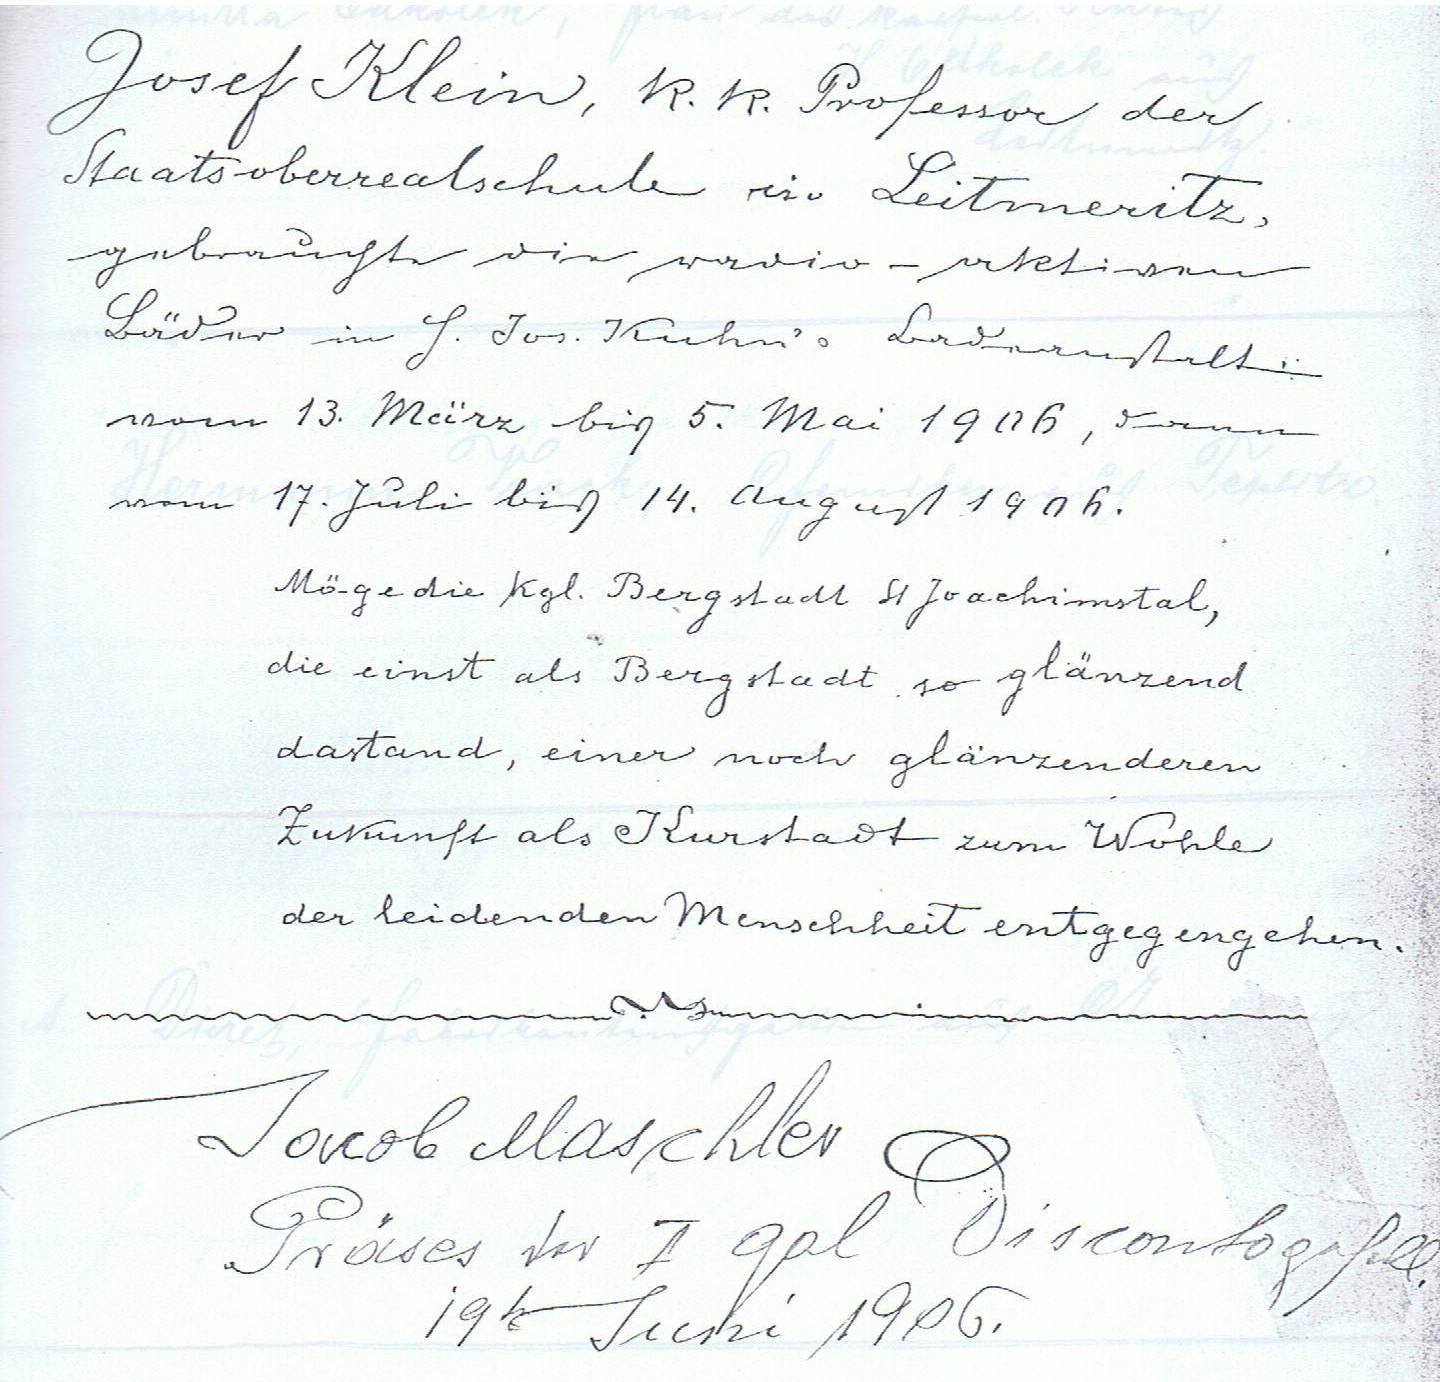 Josef Klein, k. k. Professor der
Staatsoberrealschule in Leitmeritz,
gebrauchte die radio-aktiven
Bäder in H. Jos. Kuhn's Badeanstalt:
vom 13. März bis 5. Mai 1906, dann
vom 17. Juli bis 14. August 1906.
Möge die kgl. Bergstadt St Joachimstal,
die einst als Bergstadt so glänzend
dastand, einer noch glänzenderen
Zukunft als Kurstadt zum Wohle
der leidenden Menschheit entgegengehen.
Jacob Maschler
Präses der I gal Discontogesell.
19t Juni 1906.